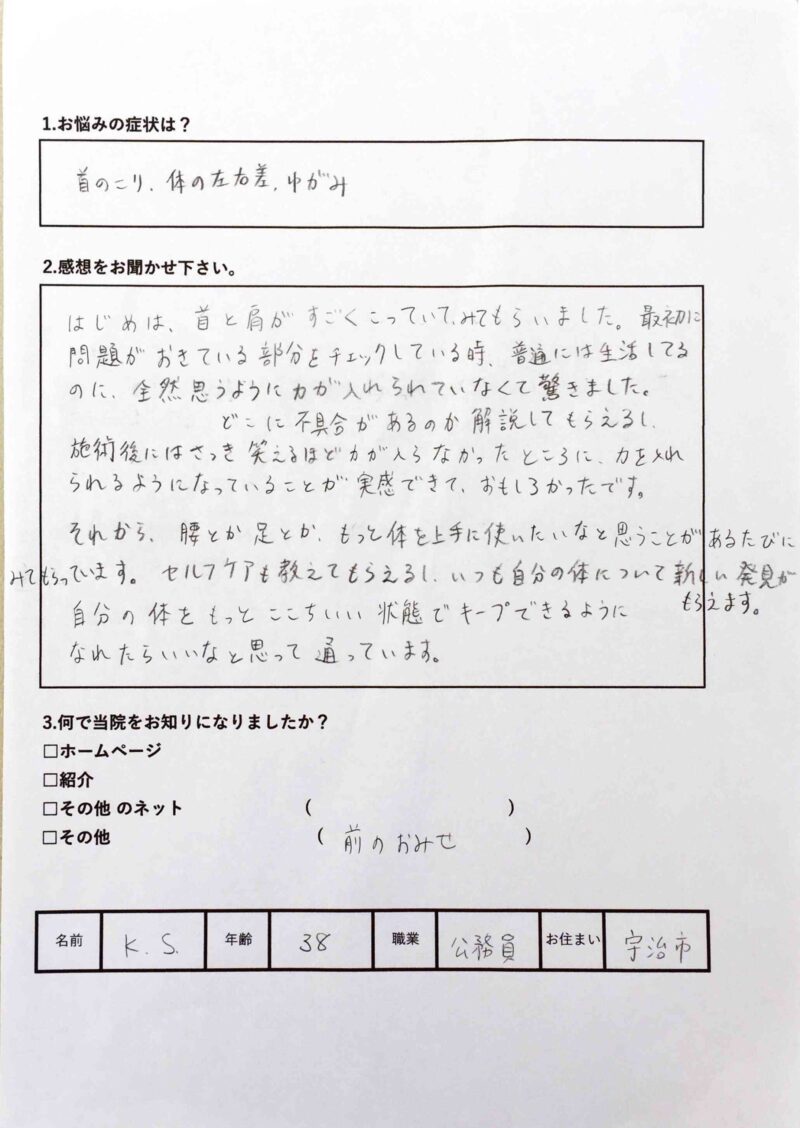 1.お悩みの症状は？
首のこり、体の左右差、ゆがみ
2.感想をお聞かせ下さい。
はじめは、首と肩がすごくこっていて、みてもらいました。最初に
問題がおきている部分をチェックしている時、普通には生活してる
のに、全然思うように力が入れられていなくて驚きました。
どこに不具合があるのか解説してもらえるし、
施術後にはさっき笑えるほど力が入らなかったところに、力を入れ
られるようになっていることが実感できて、おもしろかったです。
それから、腰とか足とか、もっと体を上手に使いたいなと思うことがあるたびに
みてもらっています。セルフケアも教えてもらえるし、いつも自分の体について新しい発見が
もらえます。
自分の体をもっとここちいい状態でキープできるように
なれたらいいなと思って通っています。
3.何で当院をお知りになりましたか？
□ホームページ
□紹介
□その他 のネット （ ）
□その他 （ 前のおみせ ）
名前 K.S. 年齢 38 職業 公務員 お住まい 宇治市